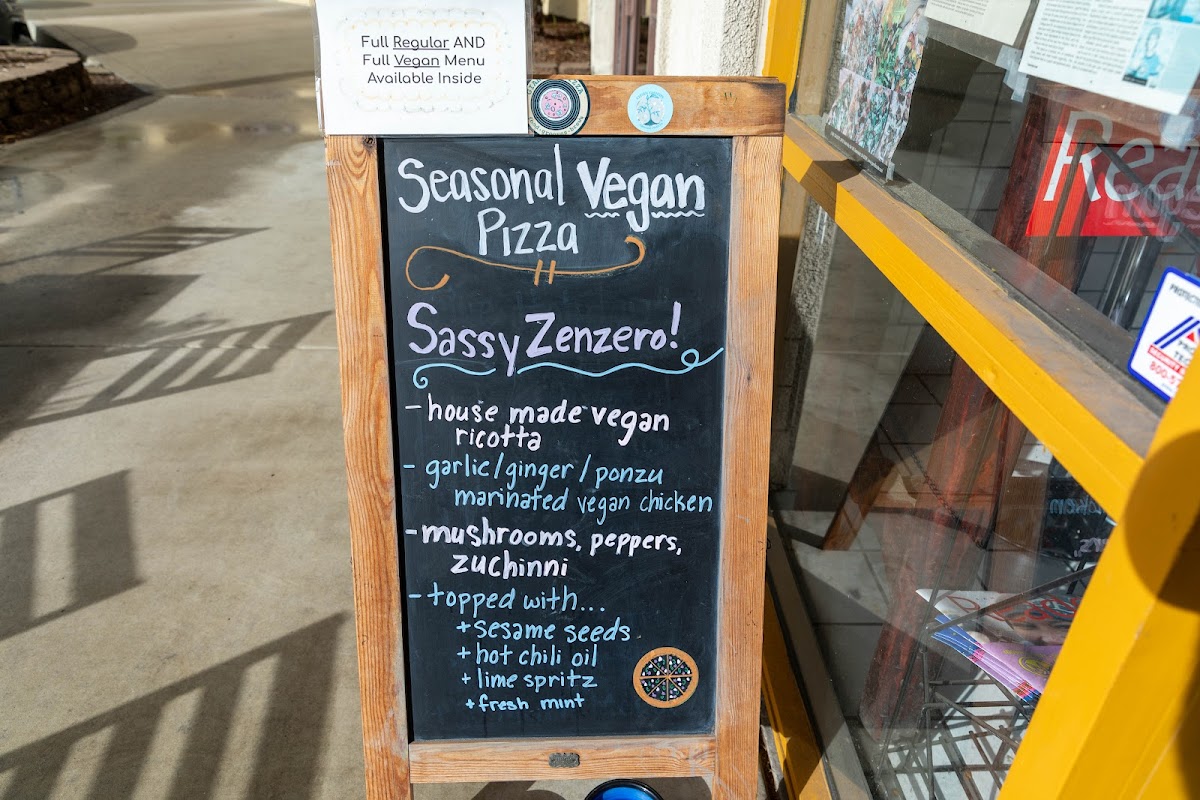 Full Regular AND
Full Vegan Menu
Available Inside
Seasonal Vegan
Pizza
Sassy Zenzero!
- house made vegan
ricotta
- garlic/ginger/ponzu
marinated vegan chicken
- mushrooms, peppers,
zuchinni
- topped with...
+ sesame seeds
+ hot chili oil
+ lime spritz
+ fresh mint